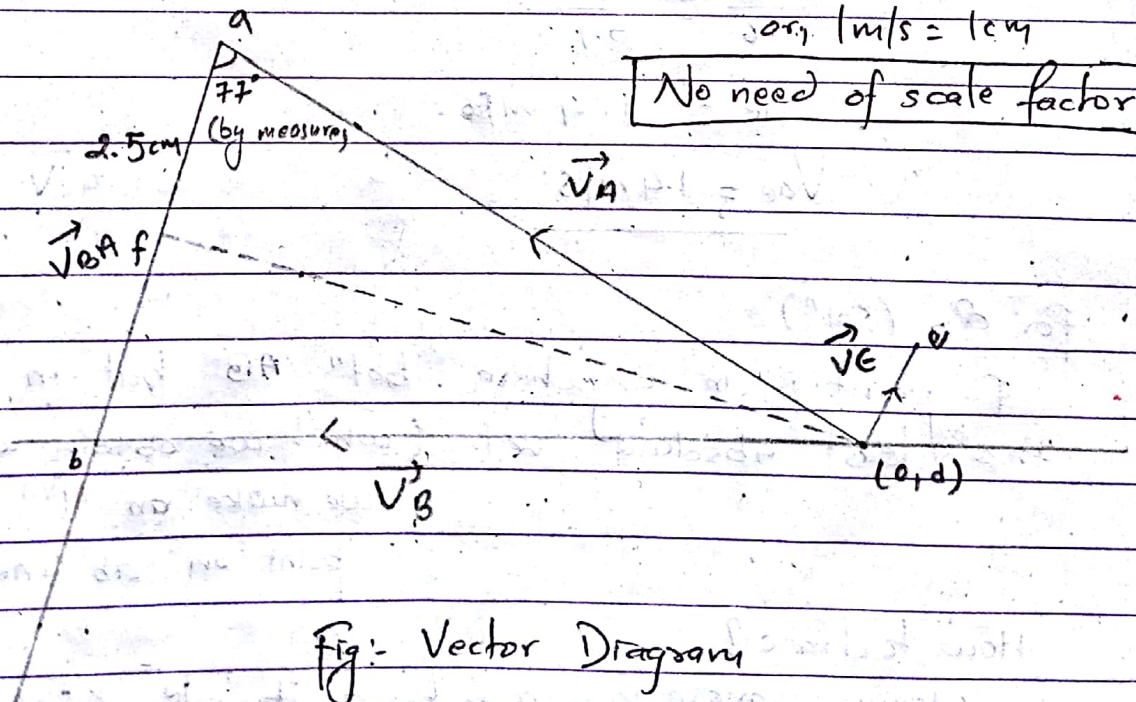 a
or, 1m/s = 1cm
No need of scale factor
77°
(by measure)
2.5cm
V⃗A
V⃗BA f
V⃗E e
b
V⃗B
(o,d)
Fig:- Vector Diagram